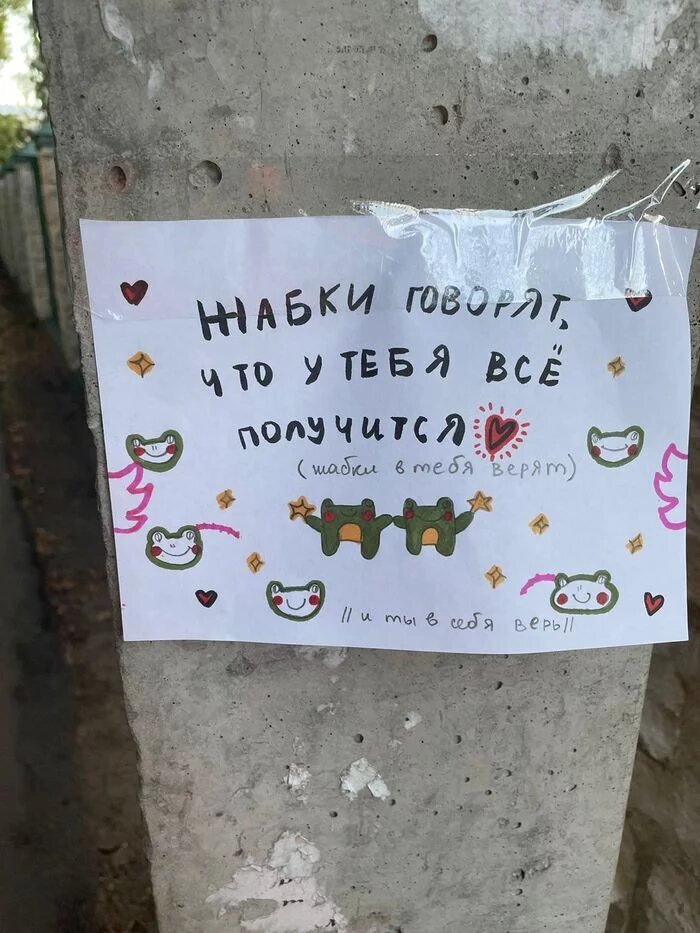 ЖАБКИ ГОВОРЯТ,
ЧТО У ТЕБЯ ВСЁ
ПОЛУЧИТСЯ
(жабки в тебя верят)
// и ты в себя верь //